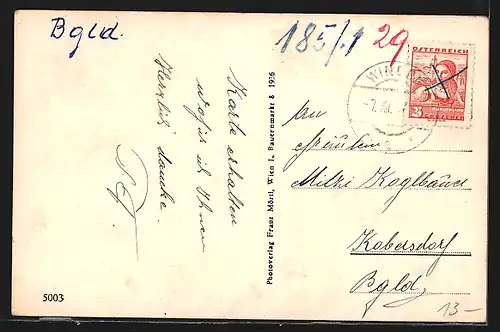 Bgld.
185/1 29
ÖSTERREICH
WIEN
Karte erhalten
wofür ich Ihnen
Herzlich danke.
Photoverlag Franz Mörtl, Wien I., Bauernmarkt 8 1936
An
Fräulein
Mitzi Koglbauer
Kobersdorf
Bgld,
5003
13-